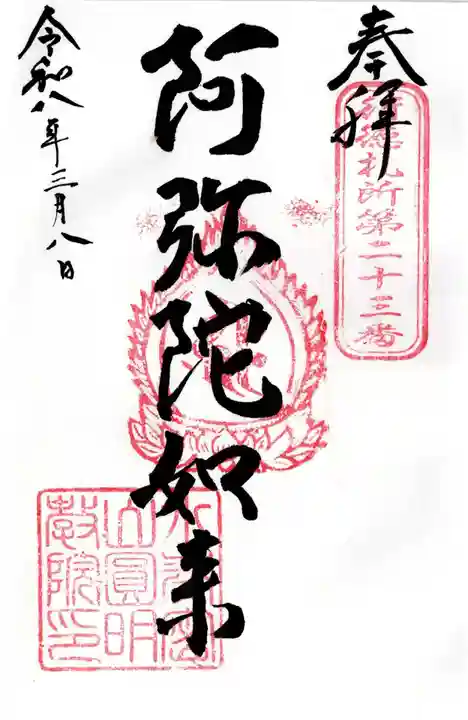 奉拝
札所第二十三番
阿弥陀如来
山圓明
教院印
令和八年三月八日